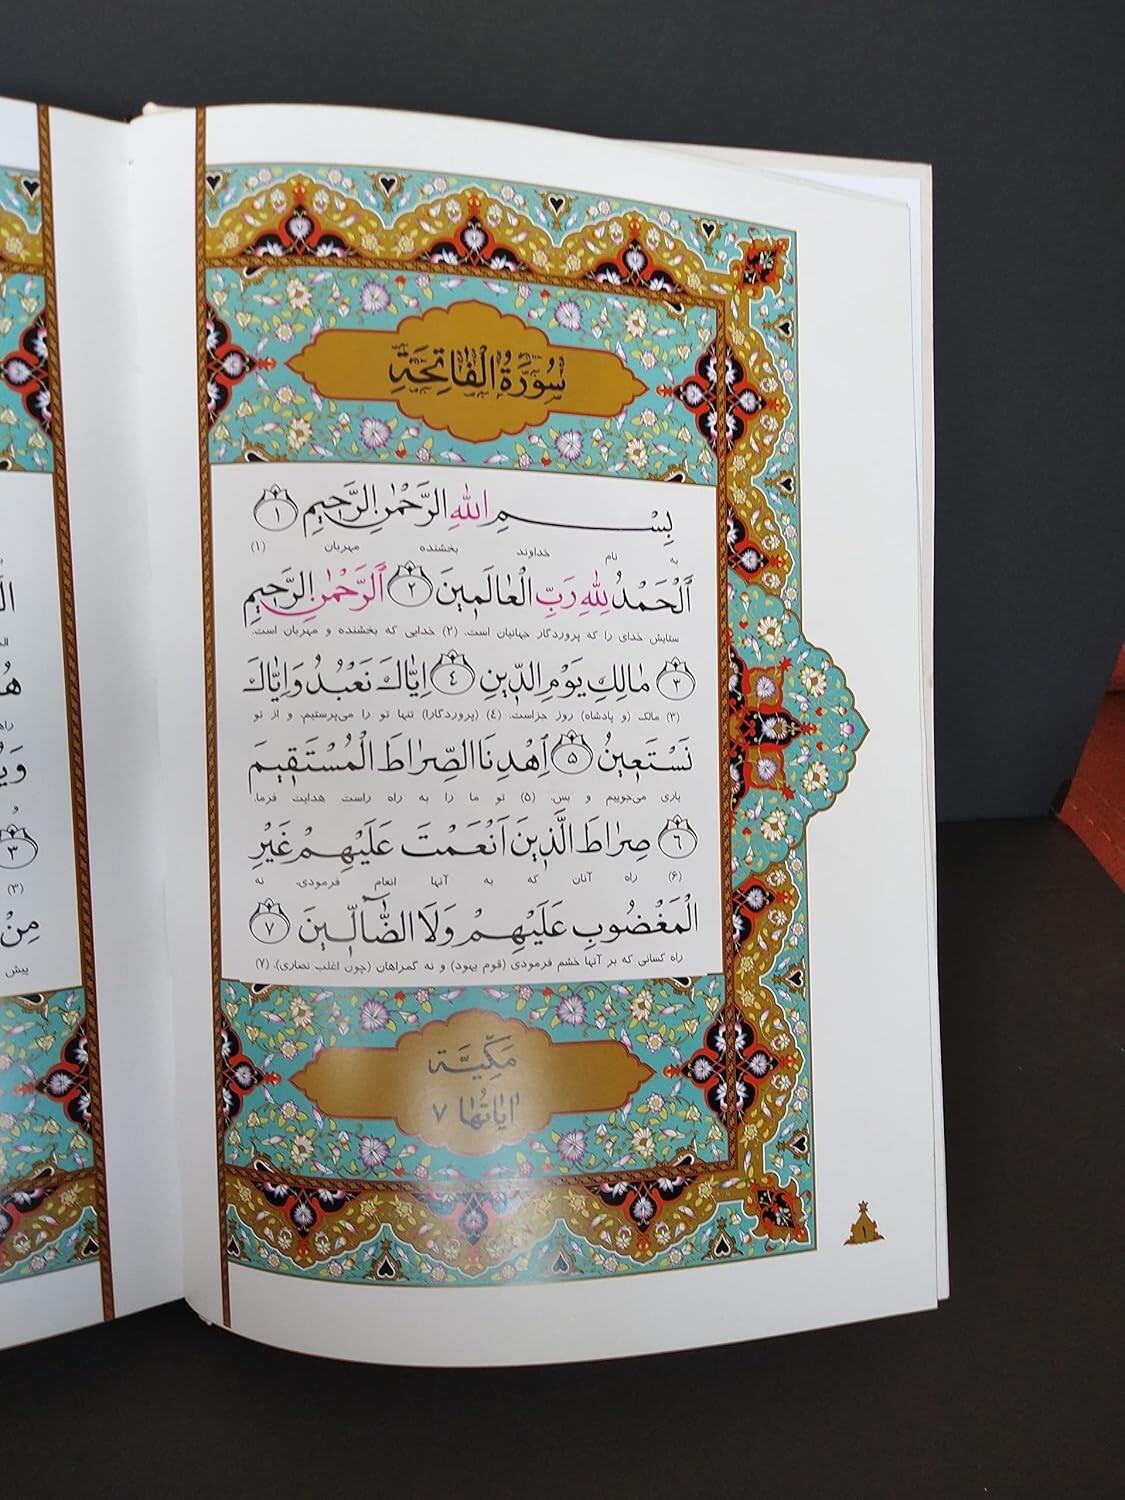 سُورَةُ الْفَاتِحَةِ
بِسْمِ اللهِ الرَّحْمٰنِ الرَّحِيمِ ١
به نام خداوند بخشنده مهربان (۱)
اَلْحَمْدُ لِلّٰهِ رَبِّ الْعَالَمِينَ ٢ اَلرَّحْمٰنِ الرَّحِيمِ
ستایش خدای را که پروردگار جهانیان است. (۲) خدایی که بخشنده و مهربان است.
٣ مَالِكِ يَوْمِ الدِّينِ ٤ اِيَّاكَ نَعْبُدُ وَاِيَّاكَ
(۳) مالک (و پادشاه) روز جزاست. (٤) (پروردگارا) تنها تو را می‌پرستیم، و از تو
نَسْتَعِينُ ٥ اِهْدِنَا الصِّرَاطَ الْمُسْتَقِيمَ
یاری می‌جوییم و بس. (۵) تو ما را به راه راست هدایت فرما.
٦ صِرَاطَ الَّذِينَ اَنْعَمْتَ عَلَيْهِمْ غَيْرِ
(۶) راه آنان که به آنها انعام فرمودی، نه
الْمَغْضُوبِ عَلَيْهِمْ وَلَا الضَّآلِّينَ ٧
راه کسانی که بر آنها خشم فرمودی (قوم یهود) و نه گمراهان (چون اغلب نصاری). (۷)
مَكِّيَّة
اٰيَاتُهَا ٧
١
هُ
٣
(۳)
مِنْ
پیش